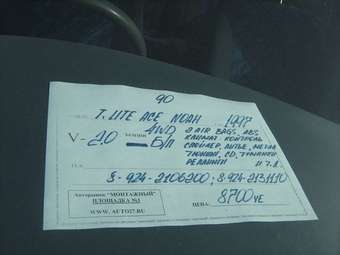 90
T. LITE ACE NOAH 1997
V- 2.0 4WD 2 AIR BAGS, ABS
Б/П КЛИМАТ-КОНТРОЛЬ
СПОЙЛЕР, ЛИТЬЕ, МЕТЛА
ТЮНИНГ, CD, ТУМАНКИ
РЕЛИНГИ И Т.Д.
8-924-2106200; 8-924-2131110
Авторынок "МОНТАЖНЫЙ"
ПЛОЩАДКА №1
WWW. AUTO27.RU
ЦЕНА: 8700 УЕ